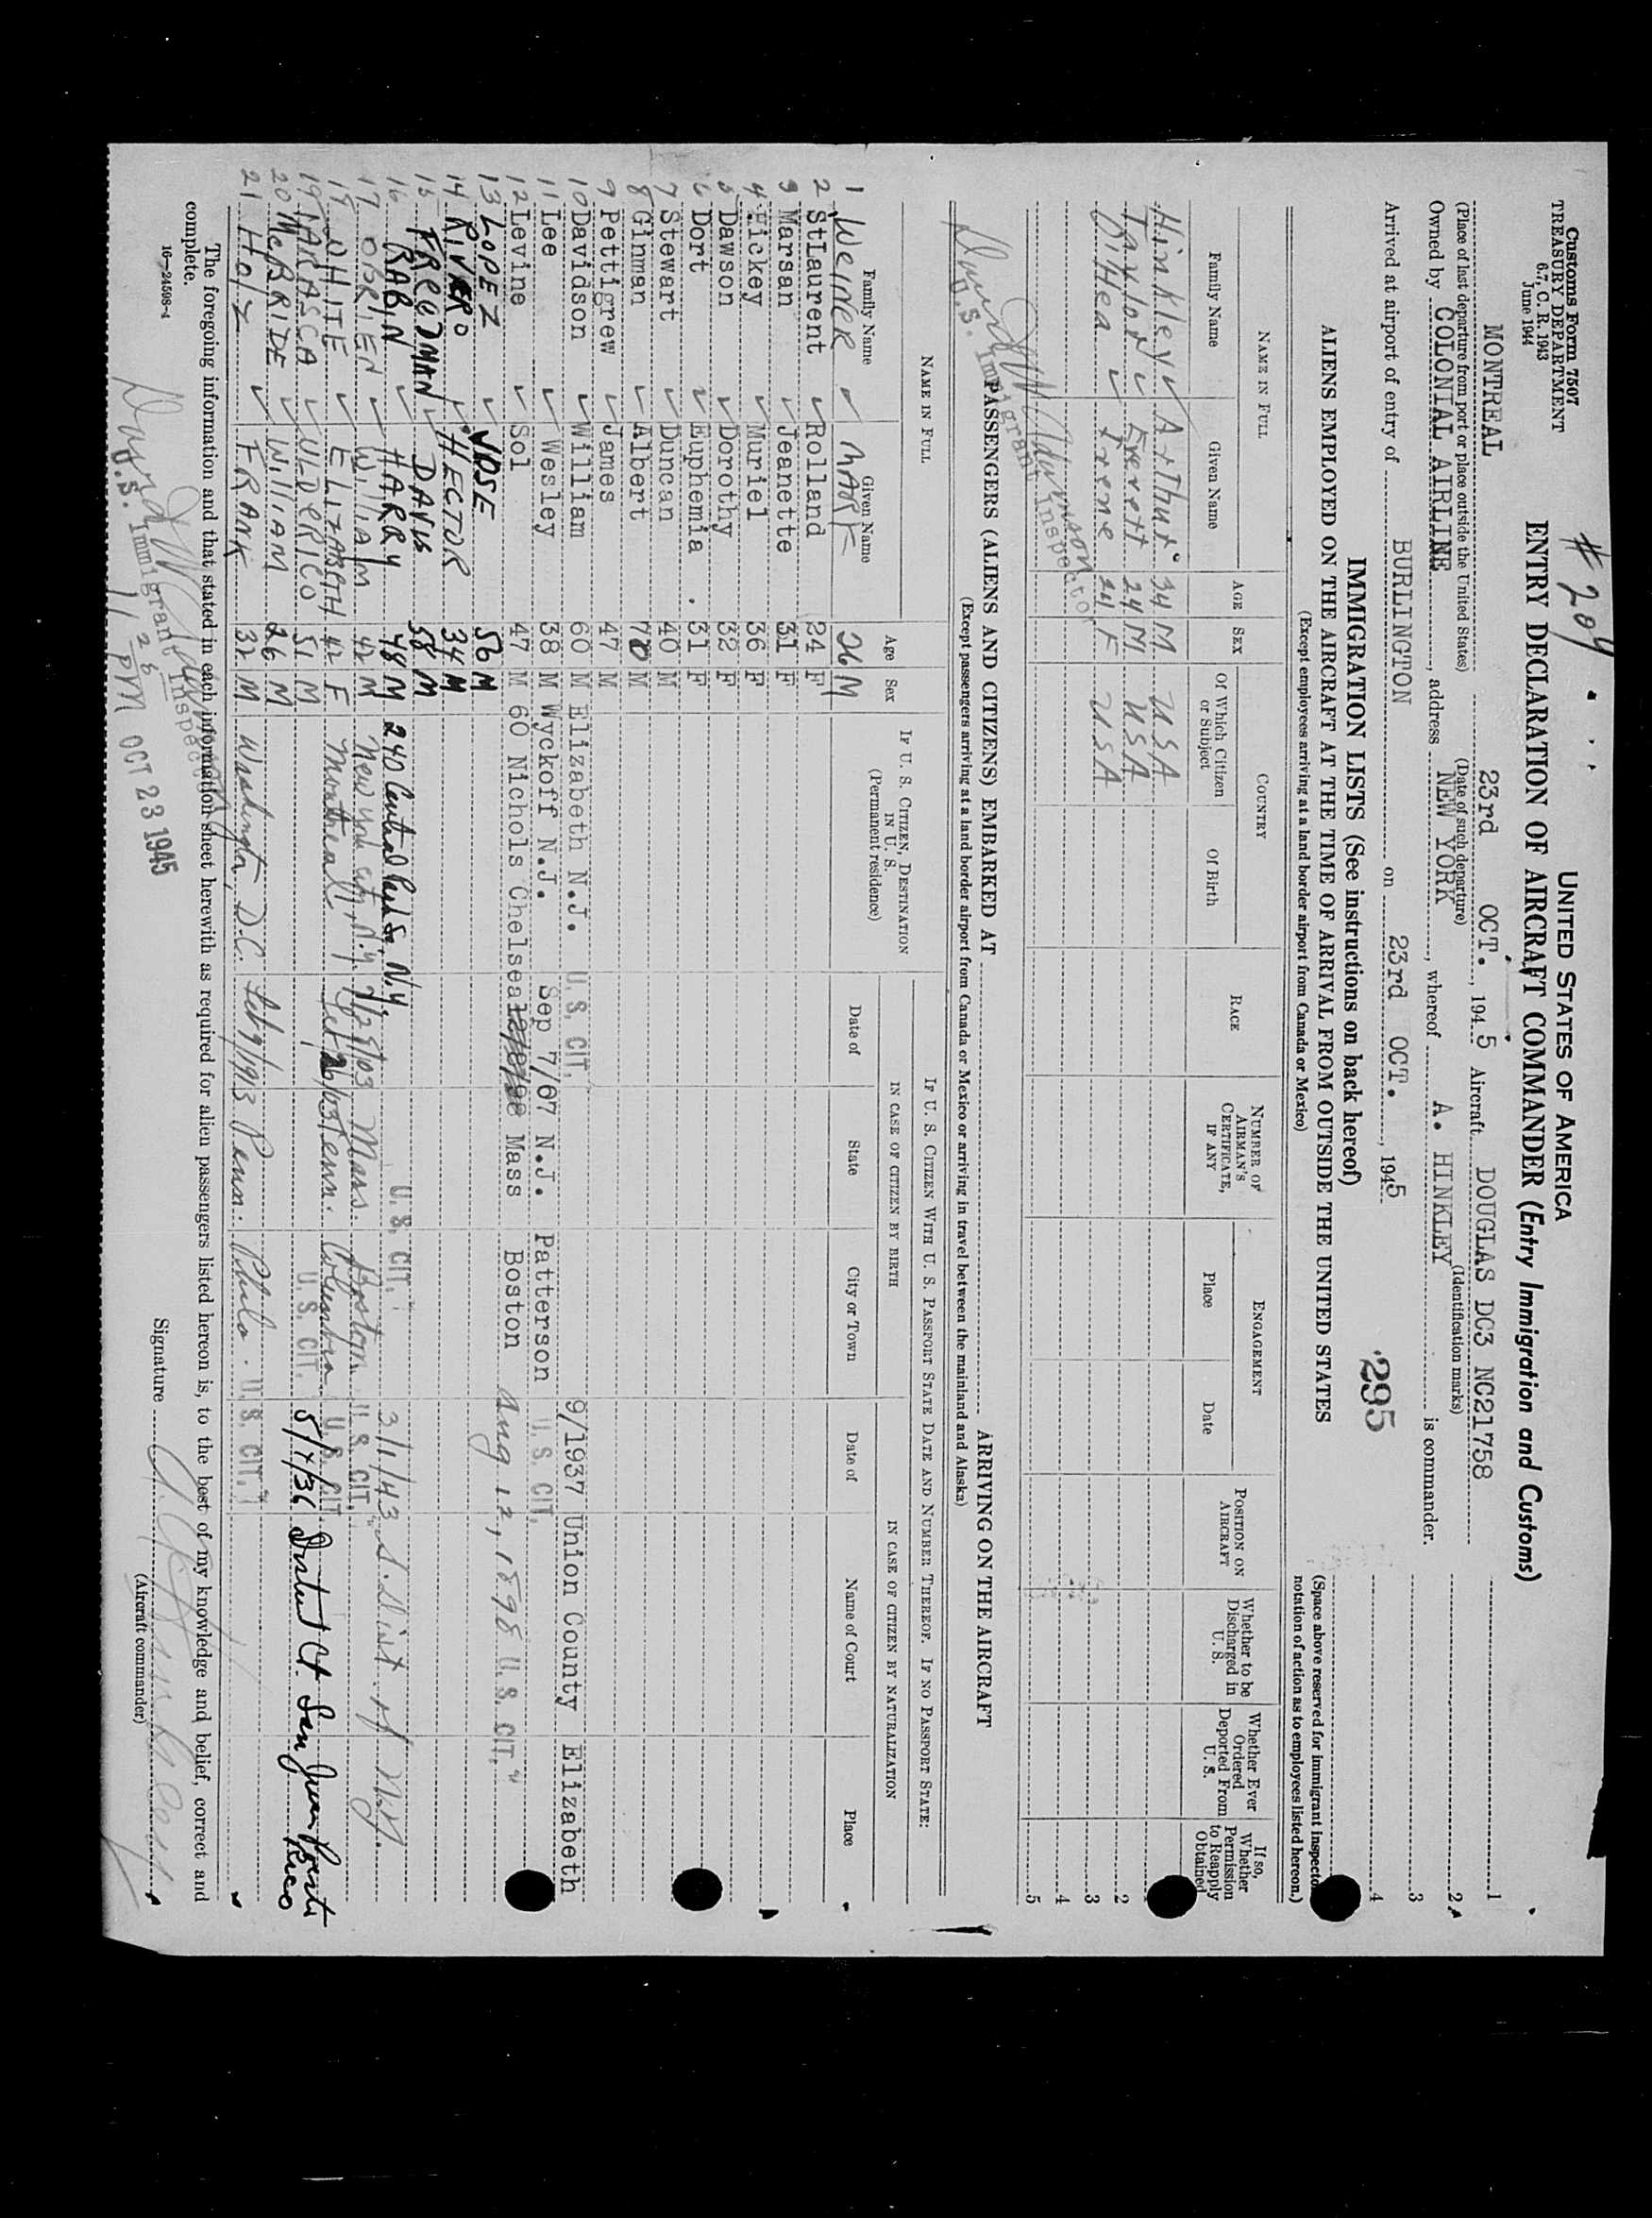 # 204
Customs Form 7507
TREASURY DEPARTMENT
6.7, C. R. 1943
June 1944
UNITED STATES OF AMERICA
ENTRY DECLARATION OF AIRCRAFT COMMANDER (Entry Immigration and Customs)
MONTREAL 23rd OCT., 1945 Aircraft DOUGLAS DC3 NC21758
(Place of last departure from port or place outside the United States) (Date of such departure) (Identification marks)
Owned by COLONIAL AIRLINE, address NEW YORK, whereof A. HINKLEY is commander.
Arrived at airport of entry of BURLINGTON on 23rd OCT., 1945
1
2
3
4
295
(Space above reserved for immigrant inspector
notation of action as to employees listed hereon.)
IMMIGRATION LISTS (See instructions on back hereof)
ALIENS EMPLOYED ON THE AIRCRAFT AT THE TIME OF ARRIVAL FROM OUTSIDE THE UNITED STATES
(Except employees arriving at a land border airport from Canada or Mexico)
NAME IN FULL AGE SEX COUNTRY RACE NUMBER OF AIRMAN'S CERTIFICATE, IF ANY ENGAGEMENT POSITION ON AIRCRAFT Whether to be Discharged in U. S. Whether Ever Ordered Deported From U. S. If so, Whether Permission to Reapply Obtained
Family Name Given Name Of Which Citizen or Subject Of Birth Place Date
Hinkley Arthur 34 M USA
Taylor Everett 24 M USA 2
O'Hea Irene 24 F USA 3
4
5
U.S. Immigrant Inspector
PASSENGERS (ALIENS AND CITIZENS) EMBARKED AT ARRIVING ON THE AIRCRAFT
(Except passengers arriving at a land border airport from Canada or Mexico or arriving in travel between the mainland and Alaska)
NAME IN FULL Age Sex IF U. S. CITIZEN, DESTINATION IN U. S. (Permanent residence) IF U. S. CITIZEN WITH U. S. PASSPORT STATE DATE AND NUMBER THEREOF. IF NO PASSPORT STATE:
IN CASE OF CITIZEN BY BIRTH IN CASE OF CITIZEN BY NATURALIZATION
Family Name Given Name Date of State City or Town Date of Name of Court Place
1 Weiner 26 M
2 StLaurent Rolland 24 F
3 Marsan Jeanette 31 F
4 Hickey Muriel 36 F
5 Dawson Dorothy 32 F
6 Dort Euphemia 31 F
7 Stewart Duncan 40 M
8 Ginman Albert 70 M
9 Pettigrew James 47 M
10 Davidson William 60 M Elizabeth N.J. U. S. CIT. 9/1937 Union County Elizabeth
11 Lee Wesley 38 M Wyckoff N.J. Sep 7/07 N.J. Patterson U. S. CIT.
12 Levine Sol 47 M 60 Nichols Chelsea Mass Boston Aug 12, 1898 U. S. CIT.
13 LOPEZ JOSE 56 M
14 RIVERO HECTOR 34 M
15 FREEDMAN DAVIS 58 M
16 RABIN HARRY 48 M 240 Central Park S. N.Y. U. S. CIT. 3/1/43 S. Dist. of N.Y.
17 OBRIEN William 42 M New York City, N.Y. Mass. Boston U. S. CIT.
WHITE ELIZABETH 42 F Montreal Columbia U. S. CIT.
19 MARASCA ULDERICO 51 M U. S. CIT. 5/4/36 District Ct. San Juan Puerto Rico
20 McBRIDE William 26 M
21 Holz FRANK 32 M Washington, D.C. Feb 9/1913 Penn. Phila. U. S. CIT.
The foregoing information and that stated in each information sheet herewith as required for alien passengers listed hereon is, to the best of my knowledge and belief, correct and
complete.
Signature
(Aircraft commander)
16—24598-1
U.S. Immigrant Inspector
PM OCT 23 1945